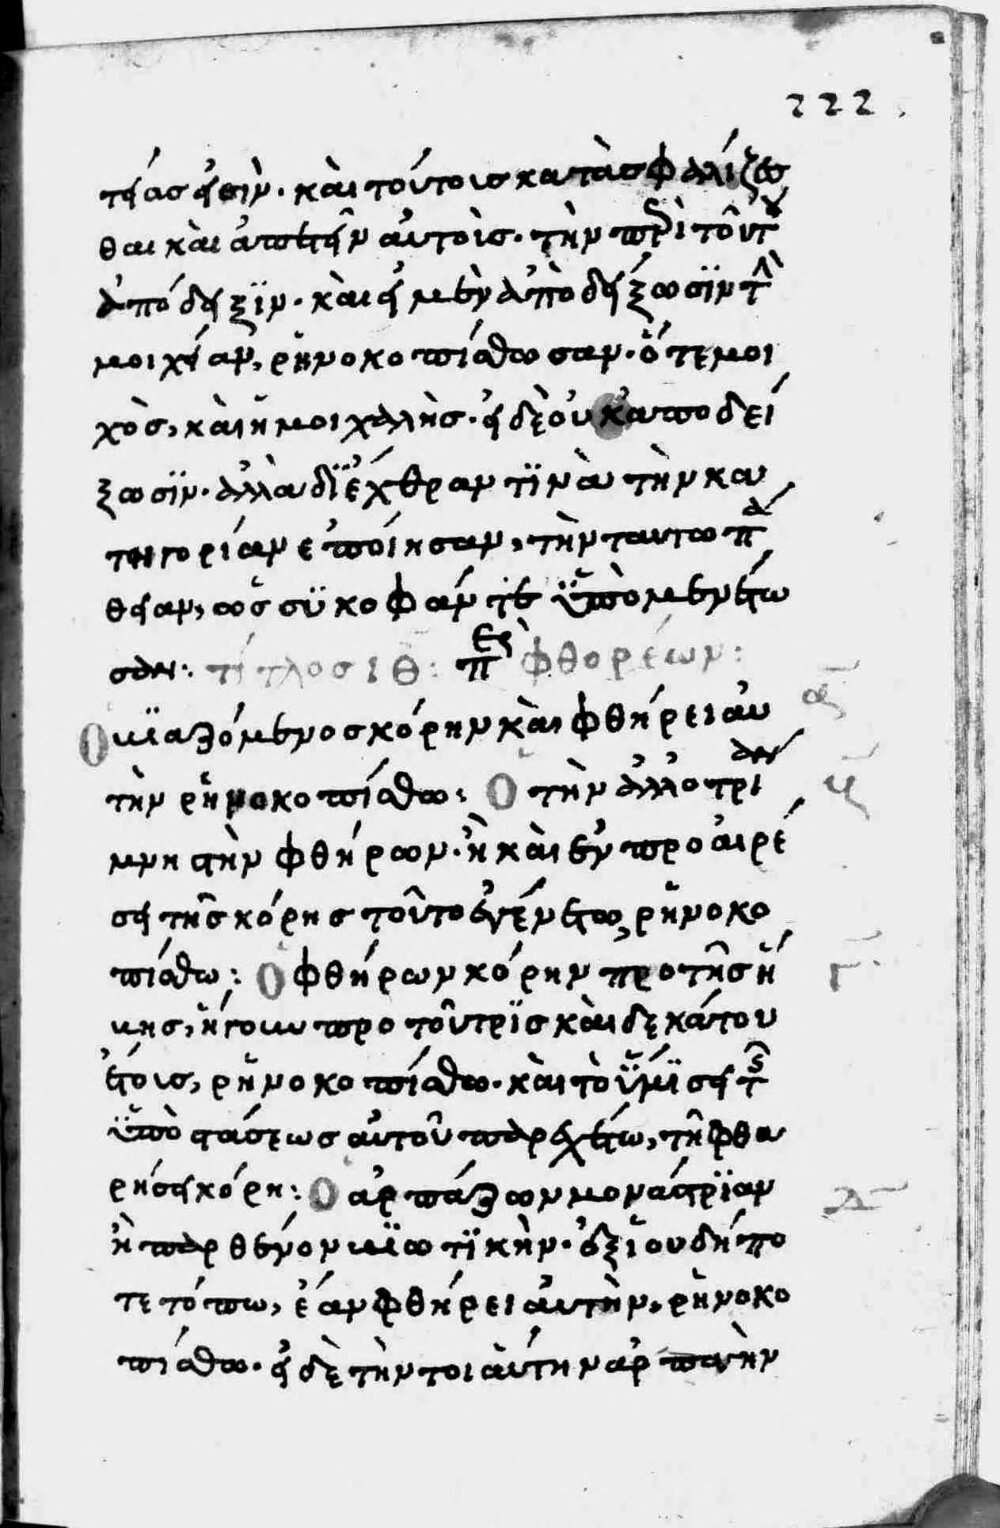 222
τείας εἰσὶν· καὶ τούτοις κατασφαλίζεσ
θαι καὶ ἀπαιτεῖν αὐτοῖς· τὴν περὶ τούτου
ἀπόδειξϊν· καὶ εἰ μὲν ἀποδείξωσϊν τὴν
μοιχείαν, ρϊνοκοπίσθωσαν· ὅ τε μοι
χὸς, καὶ ἡ μοιχαλὴς· εἰ δὲ οὐκ ἀποδεί
ξωσϊν· ἀλλὰ δϊ ἔχθραν τϊνὰ τὴν κα
τηγορίαν ἐποίησαν, τὴν ταυτοπά
θειαν, ὡς συκοφάνται ὑπομενέτω
σαν: τίτλος ιθ: περὶ φθορέων:
Ὁ βϊαζόμενος κόρην καὶ φθήρει αὐ α
τὴν ρηνοκοπίσθω: Ὁ τὴν ἀλλοτρίαν β
μνηστὴν φθήρων· ἢ καὶ ἐν προαιρέ
σει τῆς κόρης τοῦτο ἐγένετο, ρηνοκο
πίσθω: Ὁ φθήρων κόρην πρὸ τῆς ἥ γ
βης, ἤγουν προ τοῦ τρϊς καὶ δεκάτου
ἔτοις, ρηνοκοπίσθω· καὶ τὸ ἥμϊσει τῆς
ὑποστάσεως αὐτοῦ παρεχέτω, τῆ φθα
ρήσει κόρη: Ὁ ἁρπάζων μονάστρϊαν δ
ἢ παρθένον βϊωτϊκὴν· ἐξ ἱουδήπο
τε τόπω, ἐάν φθήρει αὐτὴν, ρηνοκο
πίσθω· εἰ δὲ τὴν τοιαύτην ἁρπαγὴν